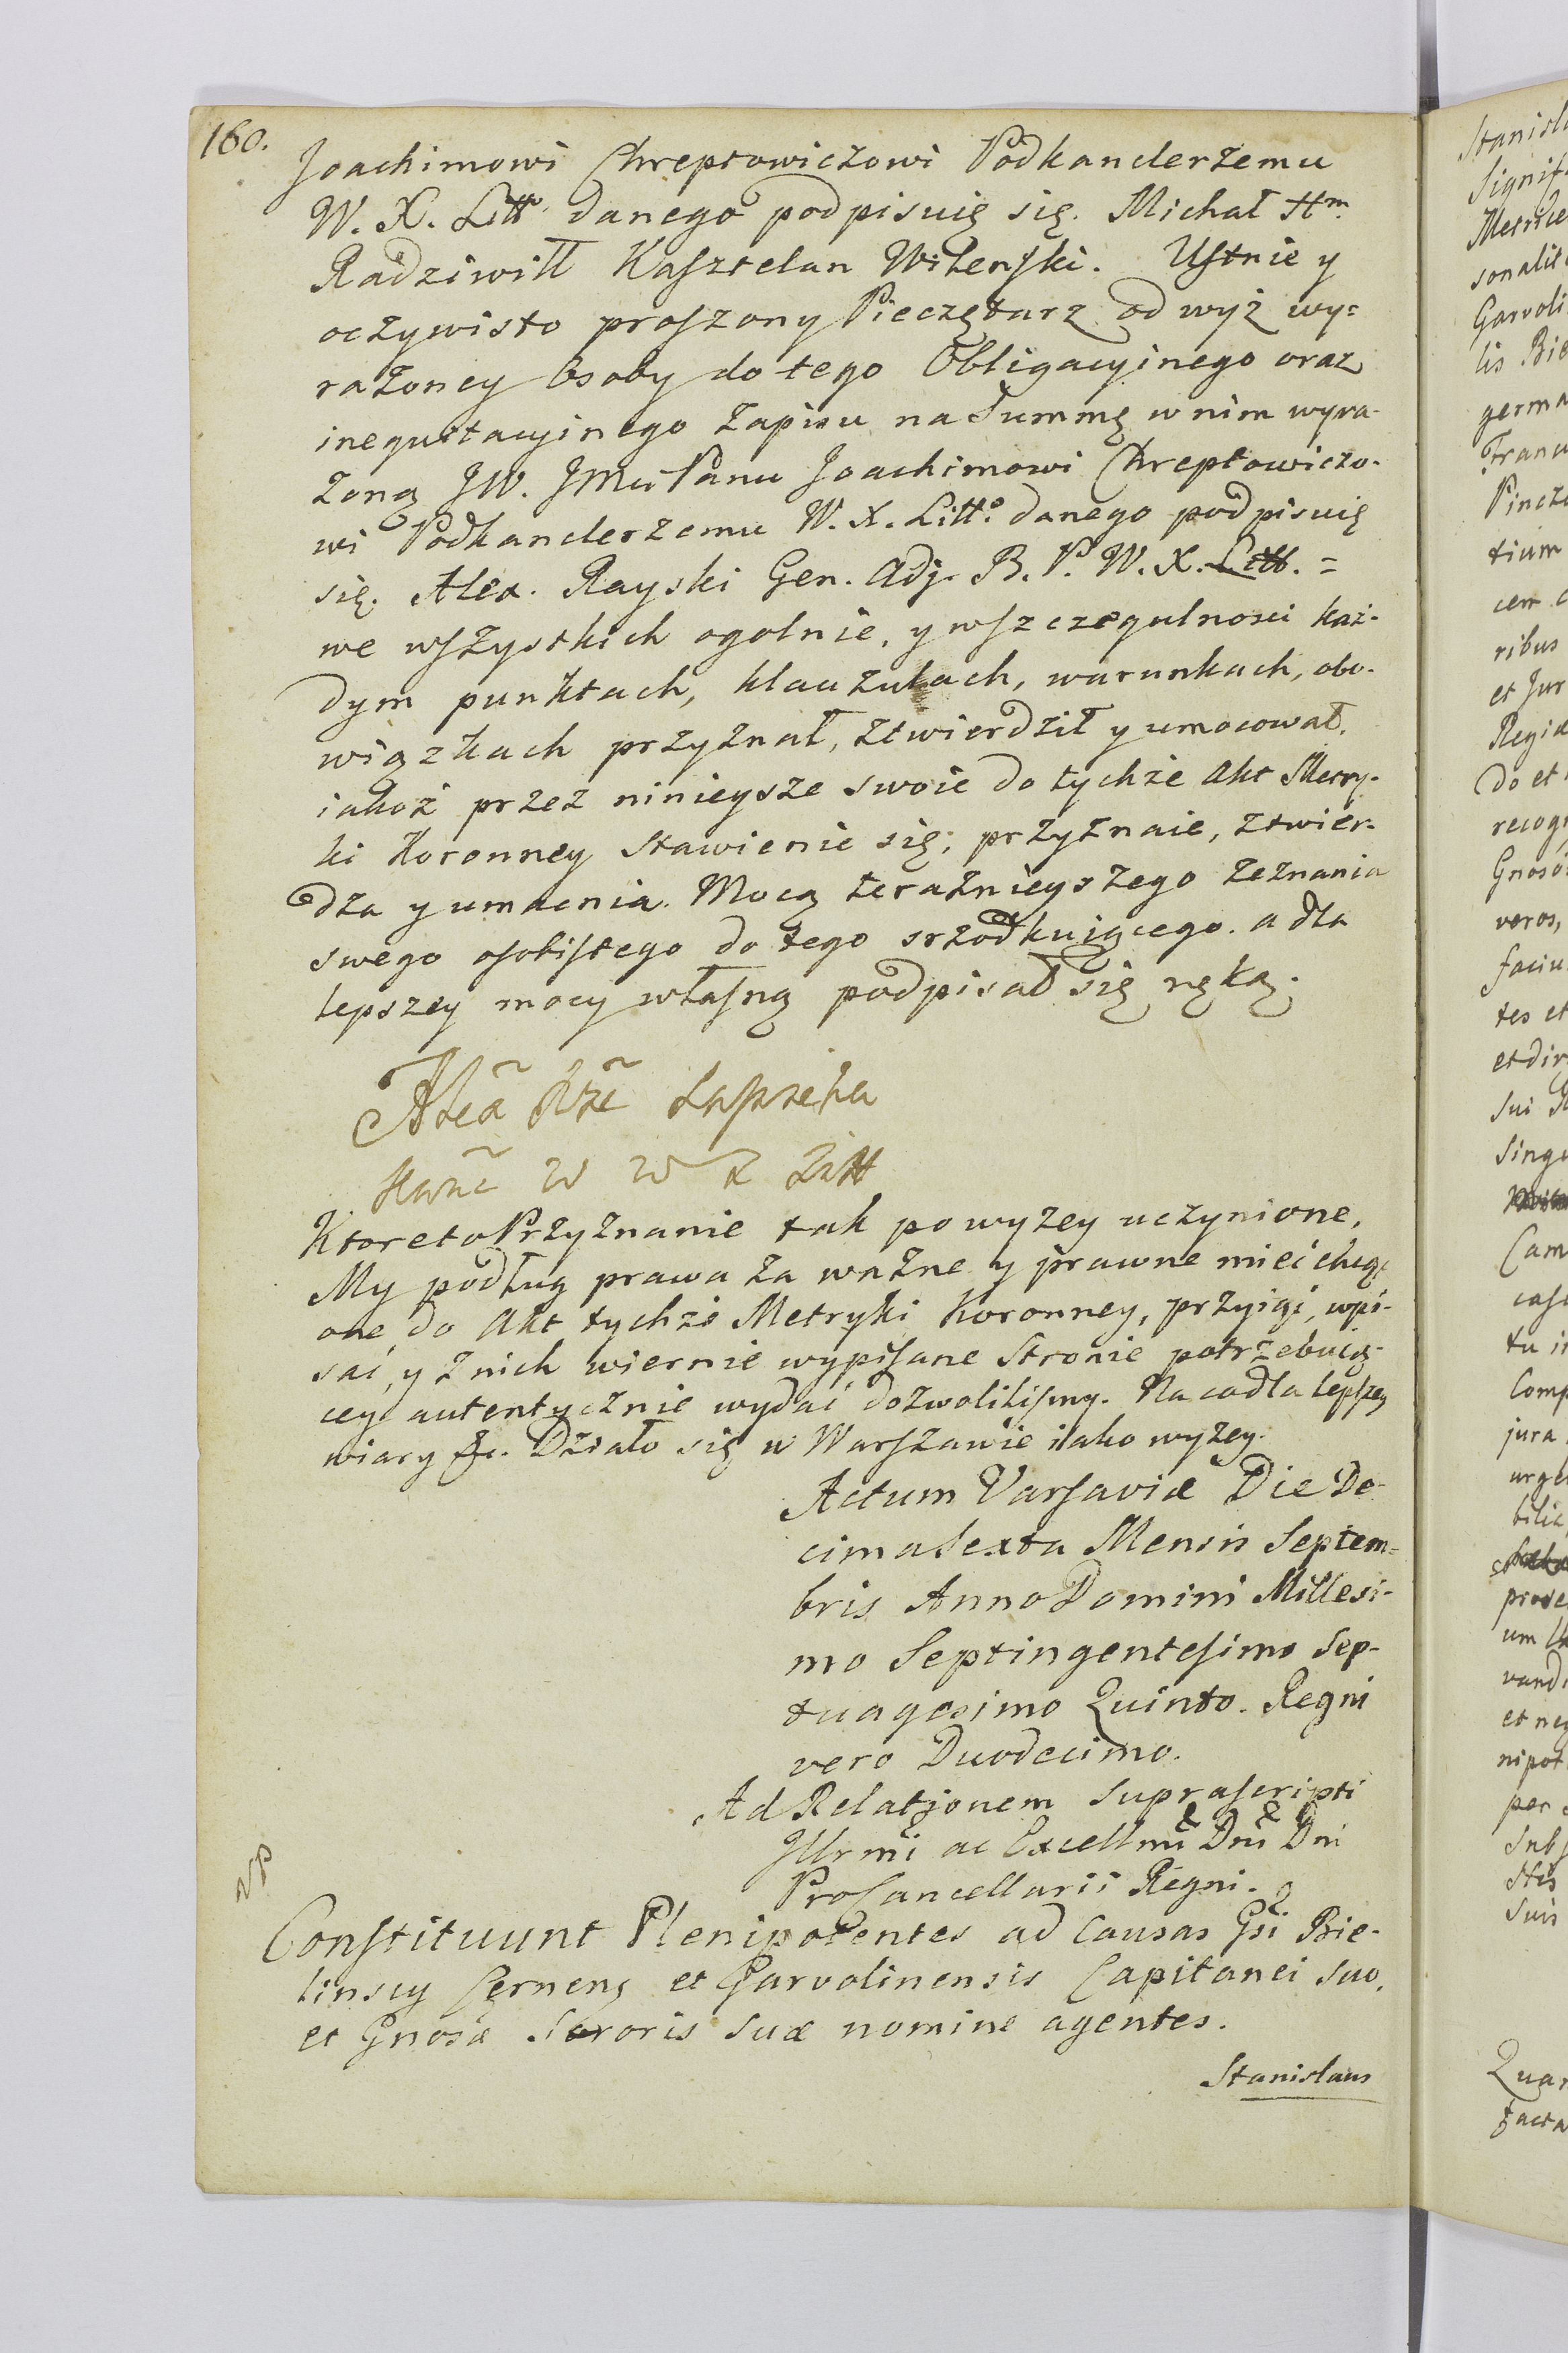 160.
Joachimowi Chreptowiczowi Podkanclerzemu
W. X. Litt° danego podpisuię się. Michał Hm.
Radziwiłł Kasztelan Wilenski. Ustnie y
oczywisto proszony Pieczętarz od wyż wy=
rażoney Osoby do tego Obligacyinego oraz
inequitacyinego Zapisu na Summę w nim wyra-
żoną JW. JMci Panu Joachimowi Chreptowiczo-
wi Podkanclerzemu W. X. Litt° danego podpisuię
się. Alex. Rayski Gen. Adj. B. P. W. X. Litt. =
we wszystkich ogolnie, y wszczegulnosci każ-
dym punktach, klauzulach, warunkach, obo-
wiązkach przyznał, ztwierdził y umocował.
iakoż przez ninieysze swoie do tychże Akt Metry-
ki Koronney stawienie się, przyznaie, ztwier-
dza y umacnia. Mocą teraznieyszego zeznania
swego osobistego do tego srzodkuiącego. a dla
lepszey mocy własną podpisał się ręką.
Sapieha
W W X Litt
Ktore to Przyznanie tak powyzey uczynione,
My podług prawa za ważne y prawne mieć chcąc
one do Akt tychże Metryki Koronney, przyiąć, wpi-
sać, y z nich wiernie wypisane Stronie potrzebuią-
cey autentycznie wydać dozwolilismy. Na co dla lepszey
wiary &c. Działo się w Warszawie iako wyzey.
Actum Varsaviæ Die De-
cima Sexta Mensis Septem=
bris Anno Domini Millesi-
mo Septingentesimo Sep-
tuagesimo Quinto. Regni
vero Duodecimo.
Ad Relationem suprascripti
Illrmi ac Excellmi Dni Dni
ProCancellarii Regni.
NP
Constituunt Plenipotentes ad Causas Gsi Bie-
linscy Cernens et Garvolinensis Capitanei suo,
et Gnosæ Sororis suæ nomine agentes.
Stanislaus